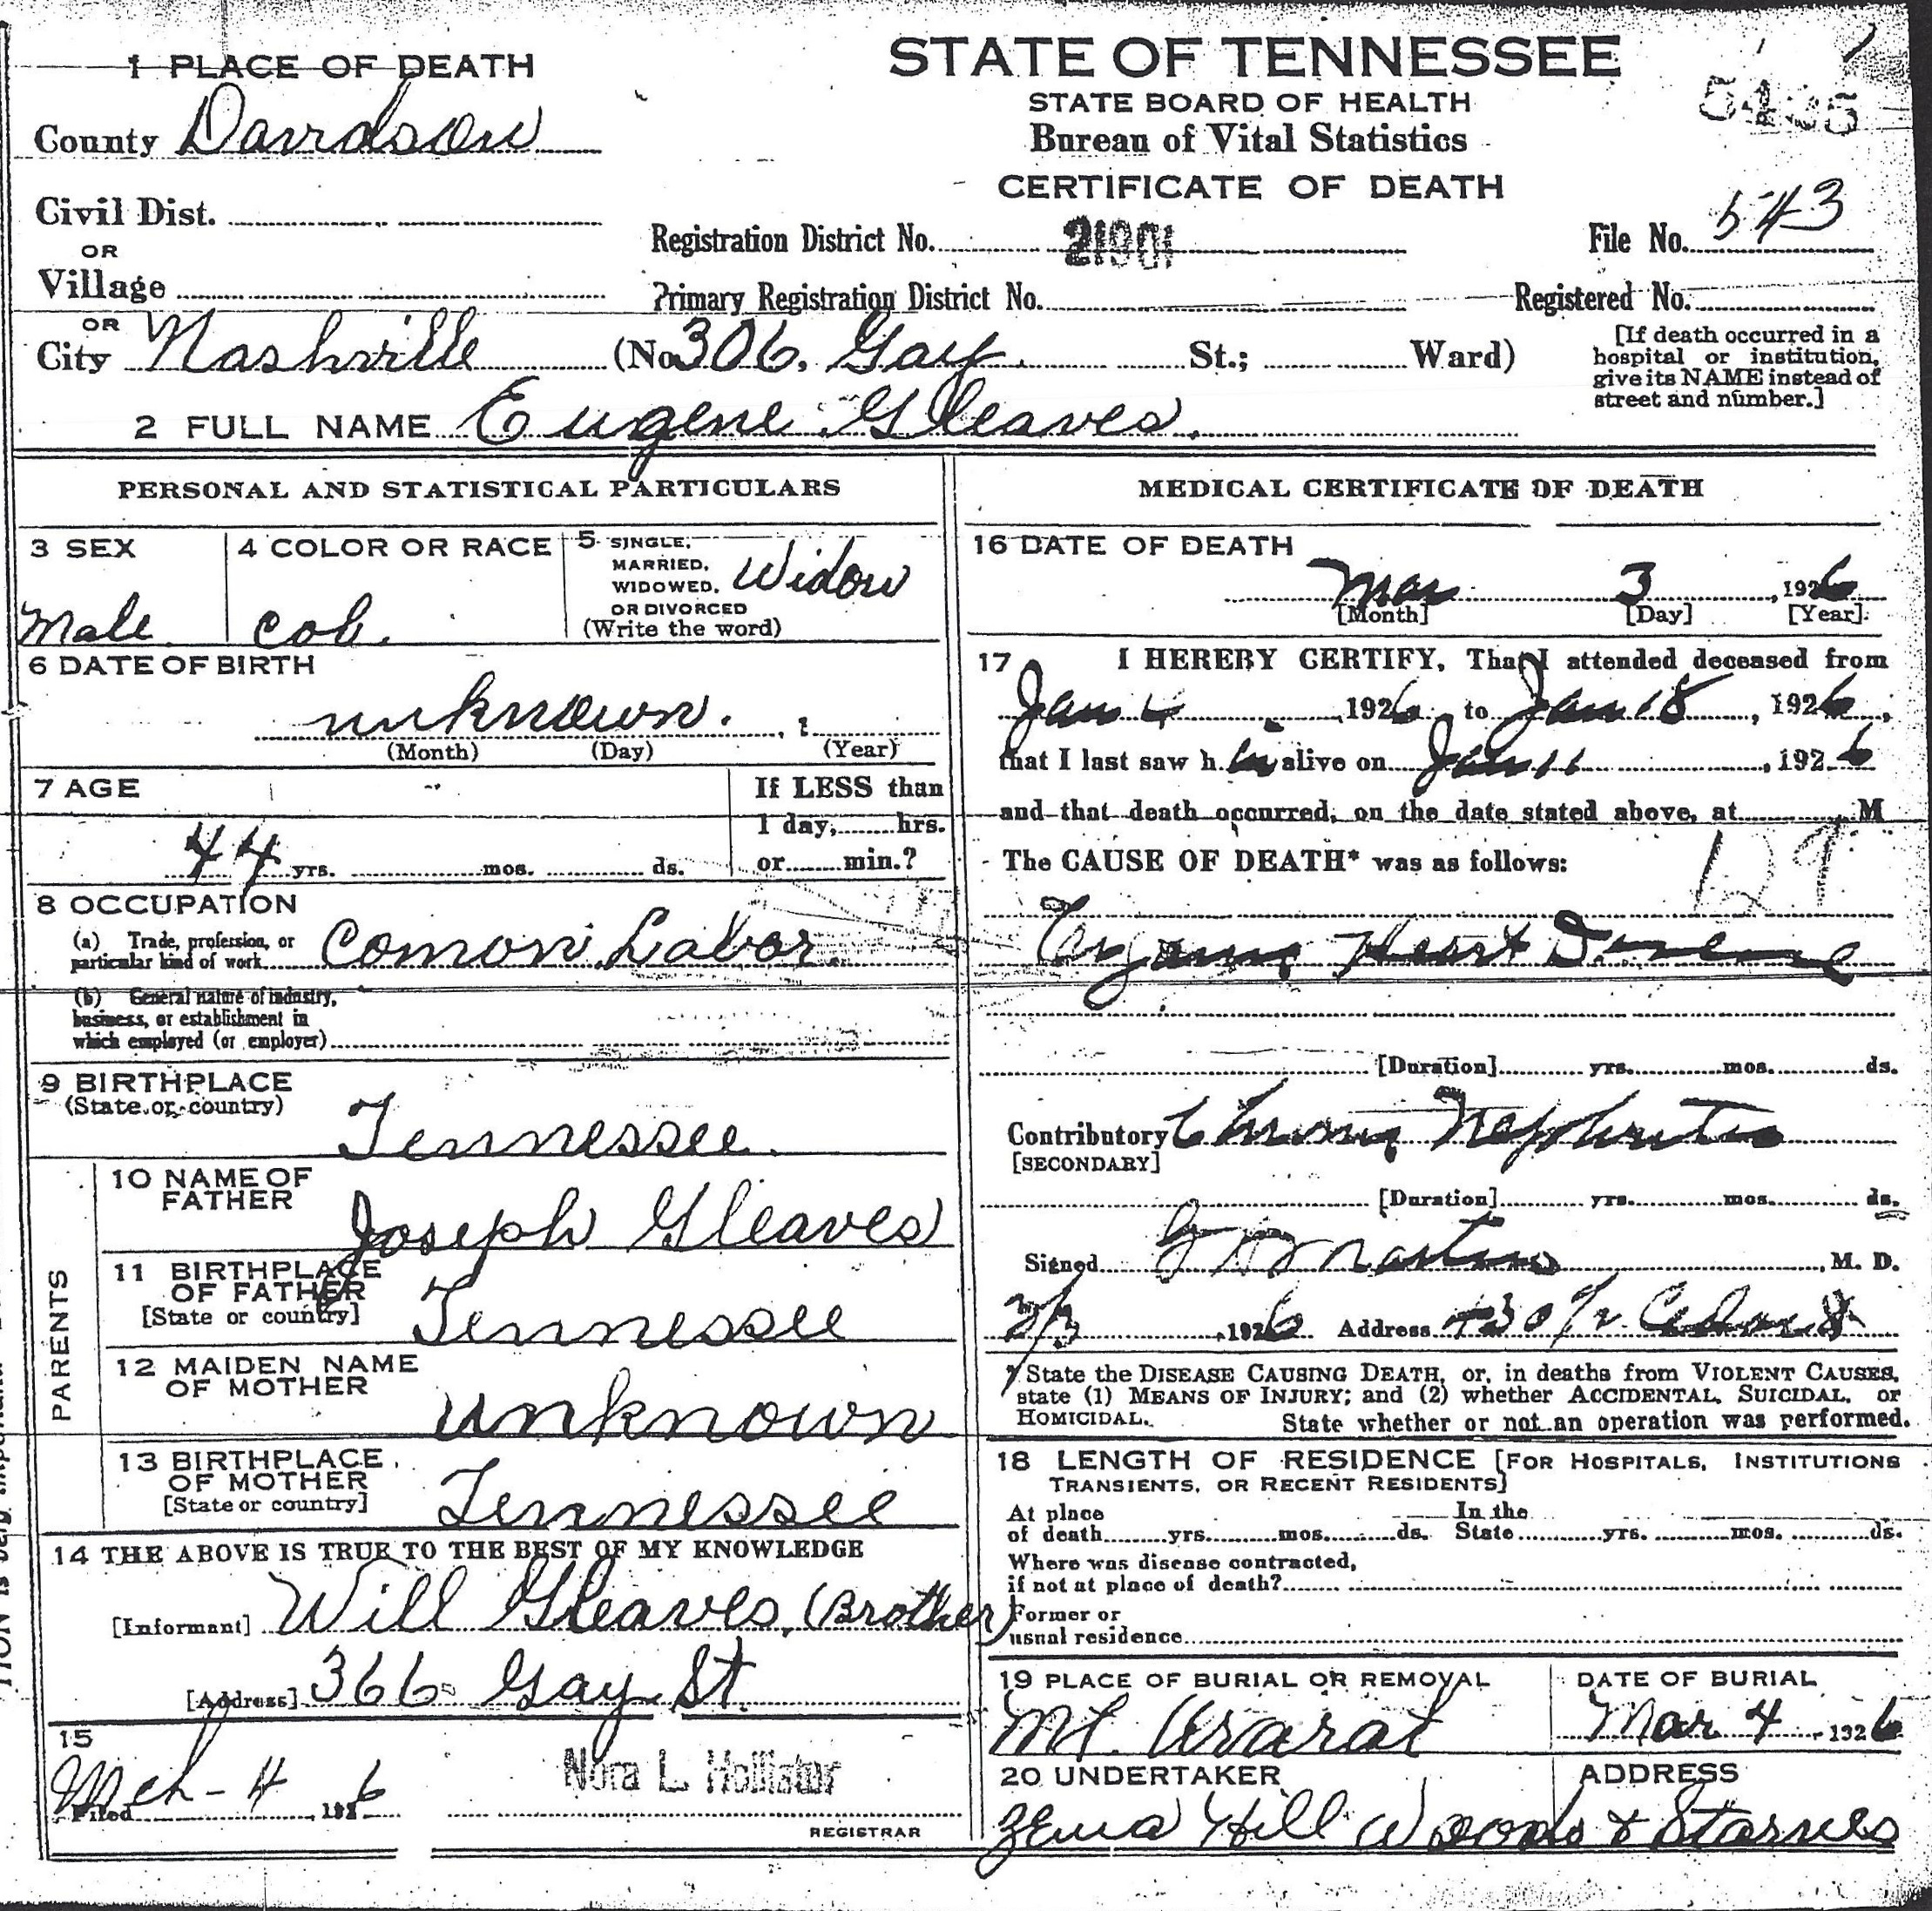 1 PLACE OF DEATH
County Davidson
Civil Dist.
OR
Village
OR
City Nashville (No 306, Gay St.; Ward)
STATE OF TENNESSEE
STATE BOARD OF HEALTH
Bureau of Vital Statistics
CERTIFICATE OF DEATH
Registration District No. 21901
File No. 543
Primary Registration District No.
Registered No.
[If death occurred in a
hospital or institution,
give its NAME instead of
street and number.]
2 FULL NAME Eugene Gleaves.
PERSONAL AND STATISTICAL PARTICULARS
3 SEX
Male
4 COLOR OR RACE
Col.
5 SINGLE,
MARRIED,
WIDOWED,
OR DIVORCED
(Write the word)
Widow
6 DATE OF BIRTH
unknown.
(Month) (Day) (Year)
7 AGE
44 yrs. mos. ds.
If LESS than
1 day, hrs.
or min.?
8 OCCUPATION
(a) Trade, profession, or
particular kind of work Comon Labor.
(b) General nature of industry,
business, or establishment in
which employed (or employer)
9 BIRTHPLACE
(State or country)
Tennessee.
PARENTS
10 NAME OF
FATHER
Joseph Gleaves
11 BIRTHPLACE
OF FATHER
[State or country]
Tennessee
12 MAIDEN NAME
OF MOTHER
unknown
13 BIRTHPLACE
OF MOTHER
[State or country]
Tennessee
14 THE ABOVE IS TRUE TO THE BEST OF MY KNOWLEDGE
[Informant] Will Gleaves, (Brother)
[Address] 366 Gay St.
15
Filed Mch - 4, 1926
Nora L. Hollister
REGISTRAR
MEDICAL CERTIFICATE OF DEATH
16 DATE OF DEATH
Mar 3, 1926
[Month] [Day] [Year]
17 I HEREBY CERTIFY, That I attended deceased from
Jan 4, 1926 to Jan 18, 1926,
that I last saw h im alive on Jan 11, 1926
and that death occurred, on the date stated above, at M
The CAUSE OF DEATH* was as follows:
129
Heart Disease
[Duration] yrs. mos. ds.
Contributory Chronic Nephritis
[SECONDARY]
[Duration] yrs. mos. ds.
Signed Martin, M. D.
3/3, 1926 Address 430 1/2 Cedar St
* State the DISEASE CAUSING DEATH, or, in deaths from VIOLENT CAUSES,
state (1) MEANS OF INJURY; and (2) whether ACCIDENTAL, SUICIDAL, or
HOMICIDAL. State whether or not an operation was performed.
18 LENGTH OF RESIDENCE [FOR HOSPITALS, INSTITUTIONS
TRANSIENTS, OR RECENT RESIDENTS]
At place
of death yrs. mos. ds.
In the
State yrs. mos. ds.
Where was disease contracted,
if not at place of death?
Former or
usual residence
19 PLACE OF BURIAL OR REMOVAL
Mt. Ararat
DATE OF BURIAL
Mar 4, 1926
20 UNDERTAKER
ADDRESS
Zema Hill Woods & Starnes